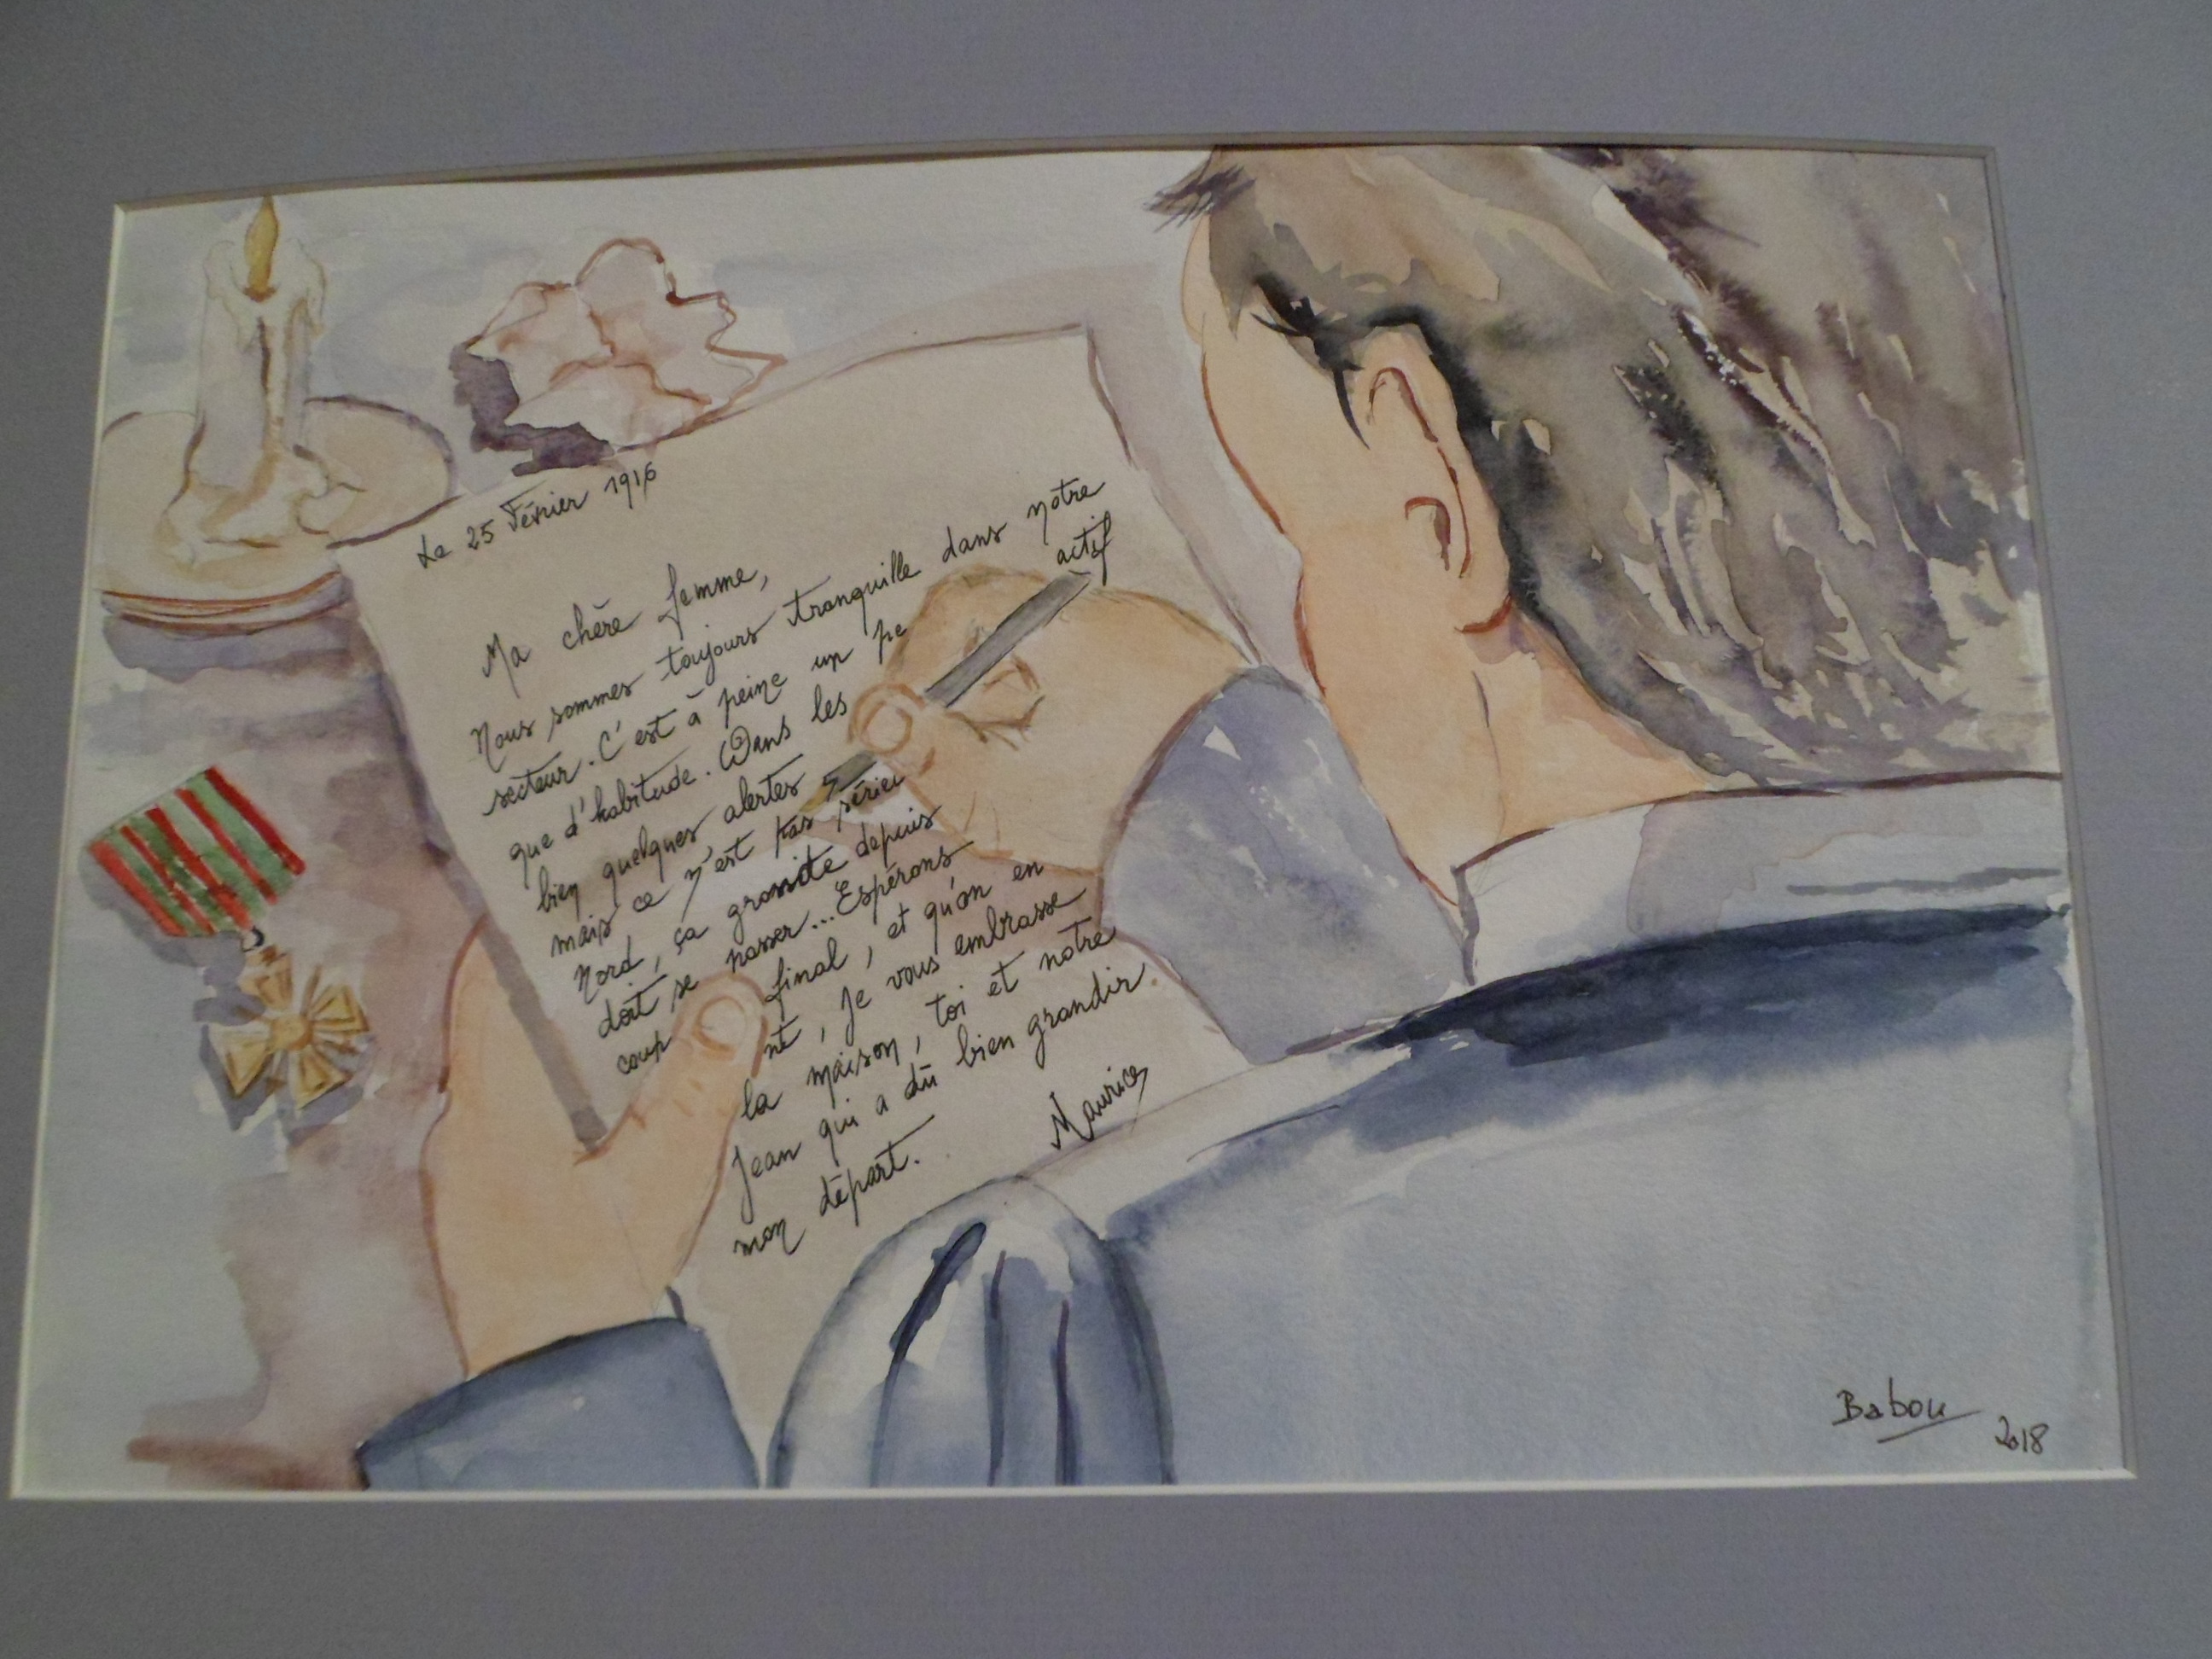 Le 25 Février 1916
Ma chère femme,
Nous sommes toujours tranquille dans notre
secteur. C'est à peine un pe actif
que d'habitude. Dans les
bien quelques alertes
mais ce n'est pas sérieu
Nord, ça grossite depuis
doit se passer... Espérons
coup final, et qu'on en
nt, je vous embrasse
la maison, toi et notre
Jean qui a dû bien grandir.
mon départ.
Maurice
Babou
2018